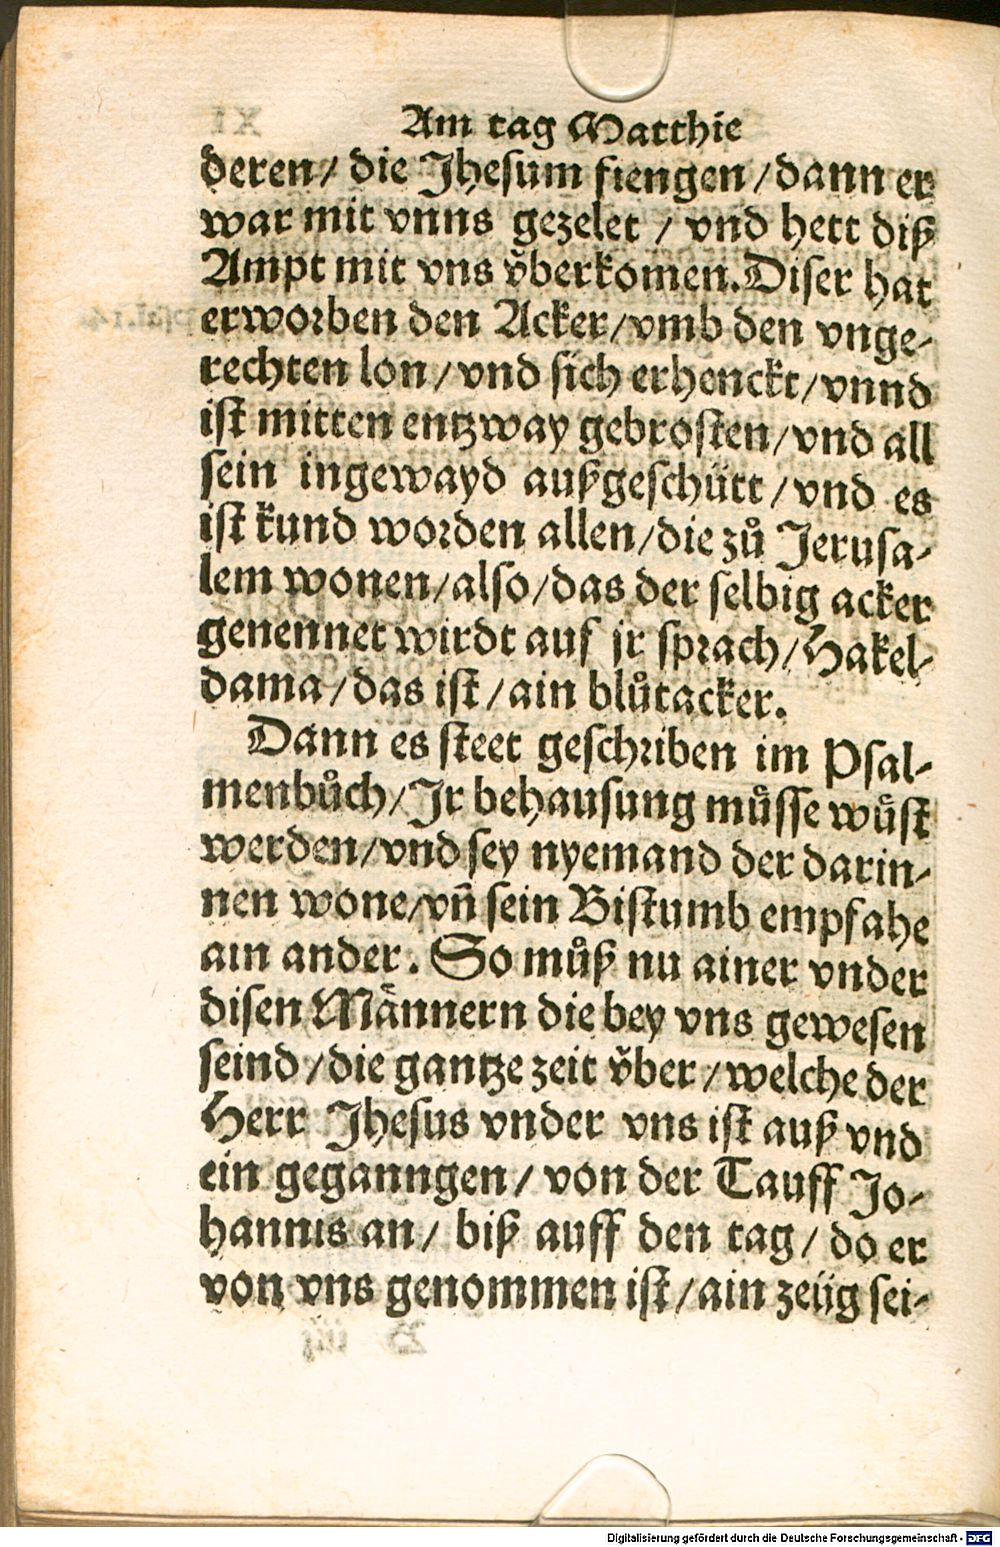 Am tag Matthie
deren/ die Jhesum fiengen/dann er
war mit vnns gezelet / vnd hett diß
Ampt mit vns vͤberkomen. Diser hat
erworben den Acker/vmb den vnge-
rechten lon/vnd sich erhenckt/vnnd
ist mitten entzway gebrosten/vnd all
sein ingewayd außgeschütt/vnd es
ist kund worden allen/die zů Jerusa-
lem wonen/also/das der selbig acker
genennet wirdt auf jr sprach/Hakel-
dama/das ist/ain blůtacker.
Dann es steet geschriben im Psal-
menbůch/Jr behausung muͤsse wuͤst
werden/vnd sey nyemand der darin-
nen wone/vñ sein Bistumb empfahe
ain ander. So můß nu ainer vnder
disen Maͤnnern die bey vns gewesen
seind/die gantze zeit vͤber/welche der
Herr Jhesus vnder vns ist auß vnd
ein geganngen/ von der Tauff Jo-
hannis an/ biß auff den tag/ do er
von vns genommen ist/ain zeüg sei-
Digitalisierung gefördert durch die Deutsche Forschungsgemeinschaft - DFG